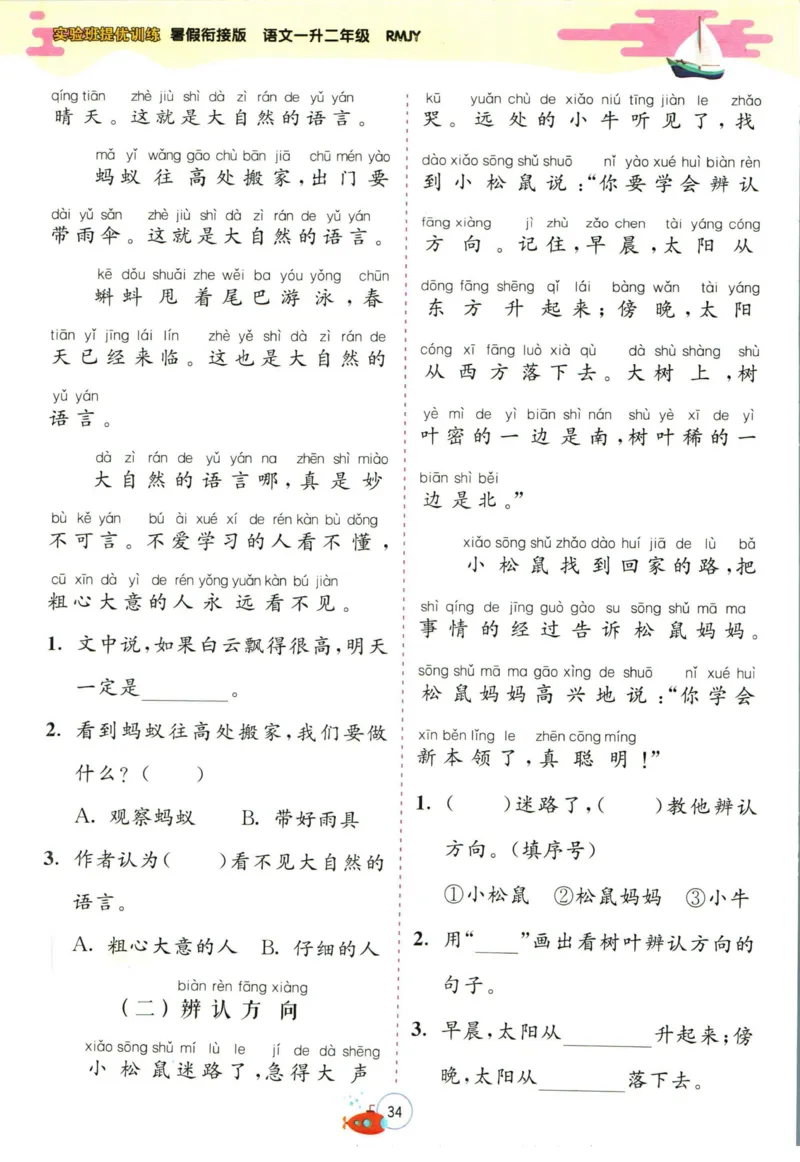 实验班提优训练 暑假衔接版 语文一升二年级 RMJY
qíng tiān zhè jiù shì dà zì rán de yǔ yán
晴天。这就是大自然的语言。
mǎ yǐ wǎng gāo chù bān jiā chū mén yào
蚂蚁往高处搬家,出门要
dài yǔ sǎn zhè jiù shì dà zì rán de yǔ yán
带雨伞。这就是大自然的语言。
kē dǒu shuǎi zhe wěi ba yóu yǒng chūn
蝌蚪甩着尾巴游泳,春
tiān yǐ jīng lái lín zhè yě shì dà zì rán de
天已经来临。这也是大自然的
yǔ yán
语言。
dà zì rán de yǔ yán na zhēn shì miào
大自然的语言哪,真是妙
bù kě yán bú ài xué xí de rén kàn bù dǒng
不可言。不爱学习的人看不懂,
cū xīn dà yì de rén yǒng yuǎn kàn bú jiàn
粗心大意的人永远看不见。
1. 文中说,如果白云飘得很高,明天
一定是________。
2. 看到蚂蚁往高处搬家,我们要做
什么?( )
A. 观察蚂蚁 B. 带好雨具
3. 作者认为( )看不见大自然的
语言。
A. 粗心大意的人 B. 仔细的人
biàn rèn fāng xiàng
(二)辨认方向
xiǎo sōng shǔ mí lù le jí de dà shēng
小松鼠迷路了,急得大声
kū yuǎn chù de xiǎo niú tīng jiàn le zhǎo
哭。远处的小牛听见了,找
dào xiǎo sōng shǔ shuō nǐ yào xué huì biàn rèn
到小松鼠说:“你要学会辨认
fāng xiàng jì zhù zǎo chen tài yáng cóng
方向。记住,早晨,太阳从
dōng fāng shēng qǐ lái bàng wǎn tài yáng
东方升起来;傍晚,太阳
cóng xī fāng luò xià qù dà shù shàng shù
从西方落下去。大树上,树
yè mì de yì biān shì nán shù yè xī de yì
叶密的一边是南,树叶稀的一
biān shì běi
边是北。”
xiǎo sōng shǔ zhǎo dào huí jiā de lù bǎ
小松鼠找到回家的路,把
shì qíng de jīng guò gào su sōng shǔ mā ma
事情的经过告诉松鼠妈妈。
sōng shǔ mā ma gāo xìng de shuō nǐ xué huì
松鼠妈妈高兴地说:“你学会
xīn běn lǐng le zhēn cōng míng
新本领了,真聪明!”
1. ( )迷路了,( )教他辨认
方向。(填序号)
①小松鼠 ②松鼠妈妈 ③小牛
2. 用“____”画出看树叶辨认方向的
句子。
3. 早晨,太阳从________升起来;傍
晚,太阳从________落下去。
34